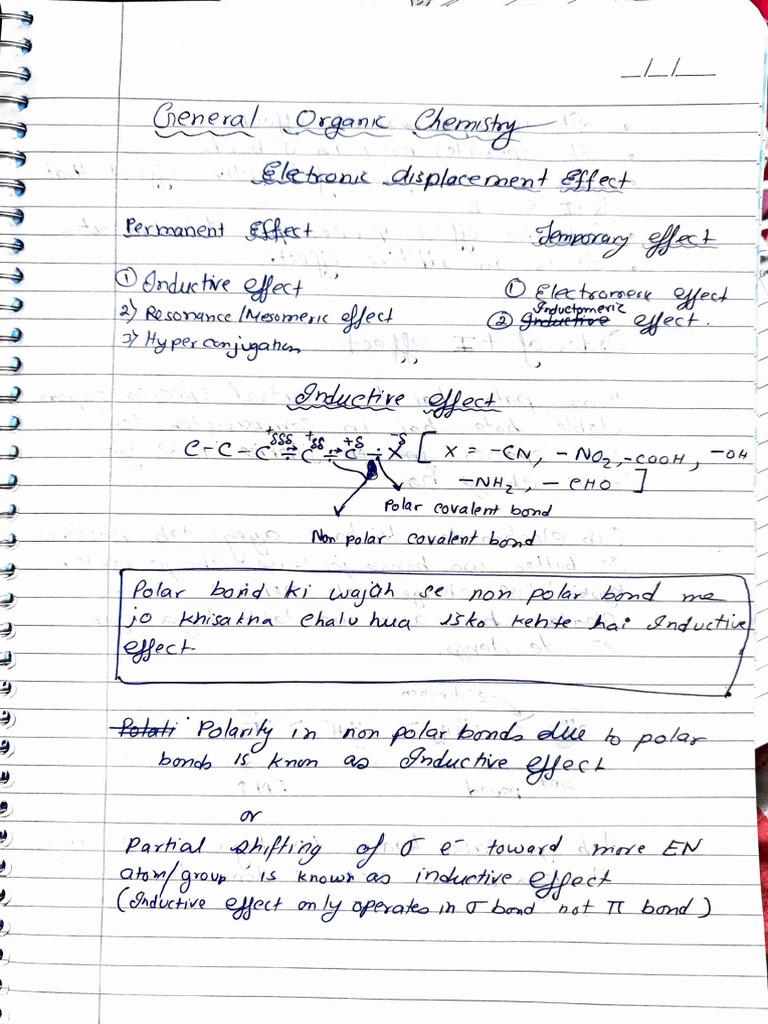 _/_/__
General Organic Chemistry
Electronic displacement Effect
Permanent Effect Temporary effect
① Inductive effect ① Electromeric effect
2) Resonance/Mesomeric effect ② Inductomeric effect.
3) Hyperconjugation
Inductive effect
C-C-C+δδδ C+δδ C+δ X-δ [ X = -CN, -NO₂, -COOH, -OH
-NH₂, -CHO ]
Polar covalent bond
Non polar covalent bond
Polar bond ki wajah se non polar bond me
jo khisakna chalu hua isko kehte hai Inductive
effect
Polarity in non polar bonds due to polar
bonds is knon as Inductive effect
or
Partial shifting of σ e⁻ toward more EN
atom/group is known as inductive effect
(Inductive effect only operates in σ bond not π bond)